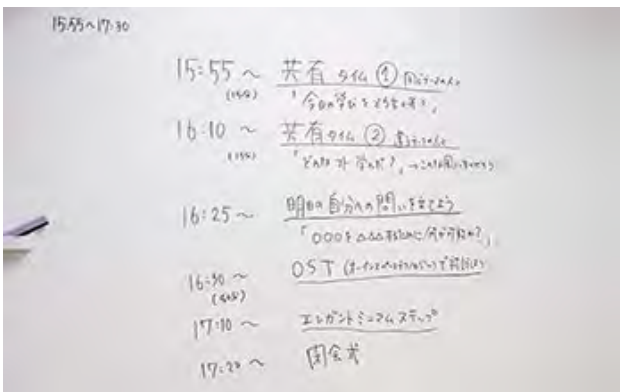 15:55~17:30
15:55 ~ 共有タイム① 同じテーマの人と
(15分) 「今日の学びをどう活かす?」
16:10 ~ 共有タイム② 違うテーマの人と
(15分) 「どんなコト学んだ?」→
16:25 ~ 明日の自分への問いを立てよう
「○○○を△△△するために何が可能か?」
16:30 ~ OST (オープンスペーステクノロジー)で
(40分)
17:10 ~ エレガントミニマムステップ
17:20 ~ 閉会式